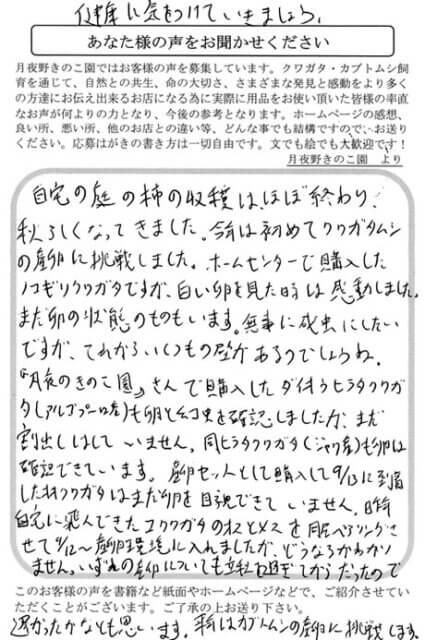 健康に気をつけていきましょう。
あなた様の声をお聞かせください
月夜野きのこ園ではお客様の声を募集しています。クワガタ・カブトムシ飼
育を通じて、自然との共生、命の大切さ、さまざまな発見と感動をより多く
の方達にお伝え出来るお店になる為に実際に用品をお使い頂いた皆様の率直
なお声が何よりの力となり、今後の参考となります。ホームページの感想、
良い所、悪い所、他のお店との違い等、どんな事でも結構ですので、お送り
ください。応募はがきの書き方は一切自由です。文でも絵でも大歓迎です！
月夜野きのこ園　より
自宅の庭の柿の収穫は、ほぼ終わり、
秋らしくなってきました。今年は初めてクワガタムシ
の産卵に挑戦しました。ホームセンターで購入した
ノコギリクワガタですが、白い卵を見た時は感動しました。
まだ卵の状態のものもいます。無事に成虫にしたい
ですが、これからいくつもの壁があるのでしょうね。
『月夜のきのこ園』さんで購入したダイオウヒラタクワガ
タ(アルゴプーロ産)も卵と幼虫を確認しましたが、まだ
割出しはしていません。同ヒラタクワガタ(ジャワ産)も卵は
確認できています。産卵セットとして購入して9/13に到着
したオオクワガタはまだ卵を目視できていません。日時
自宅に飛んできたコクワガタのオスとメスを同居ペアリングさ
せて9/12〜産卵環境に入れましたが、どうなるかわかり
ません。いずれの産卵についても立秋を過ぎてからだったので
このお客様の声を書籍など紙面やホームページなどで、ご紹介させてい
ただくことがございます。ご了承の上お送り下さい。
遅かったかなとも思います。来年はカブトムシの産卵に挑戦します。